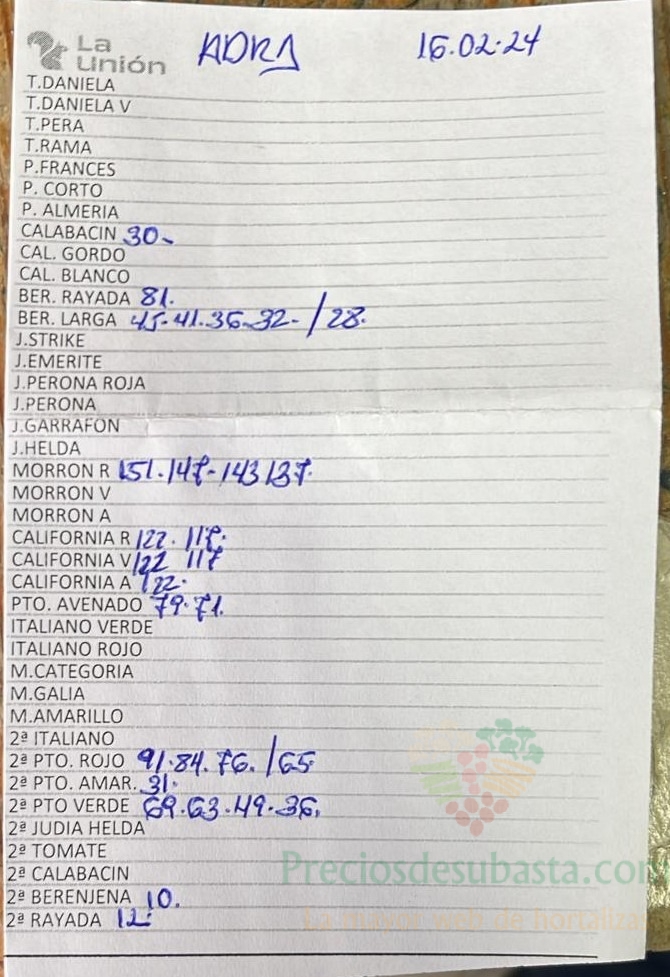 La Unión ADRA 16.02.24
T.DANIELA
T.DANIELA V
T.PERA
T.RAMA
P.FRANCES
P. CORTO
P. ALMERIA
CALABACIN 30-
CAL. GORDO
CAL. BLANCO
BER. RAYADA 81.
BER. LARGA 45-41.36-32- / 28.
J.STRIKE
J.EMERITE
J.PERONA ROJA
J.PERONA
J.GARRAFON
J.HELDA
MORRON R 151.147-143 137.
MORRON V
MORRON A
CALIFORNIA R 122. 117.
CALIFORNIA V 122 117
CALIFORNIA A 122.
PTO. AVENADO 79.71.
ITALIANO VERDE
ITALIANO ROJO
M.CATEGORIA
M.GALIA
M.AMARILLO
2ª ITALIANO
2ª PTO. ROJO 91.84.76. / 65
2ª PTO. AMAR. 31.
2ª PTO VERDE 69.63.49.36.
2ª JUDIA HELDA
2ª TOMATE
2ª CALABACIN
Preciosdesubasta.com
2ª BERENJENA 10.
2ª RAYADA 12.
La mayor web de hortalizas